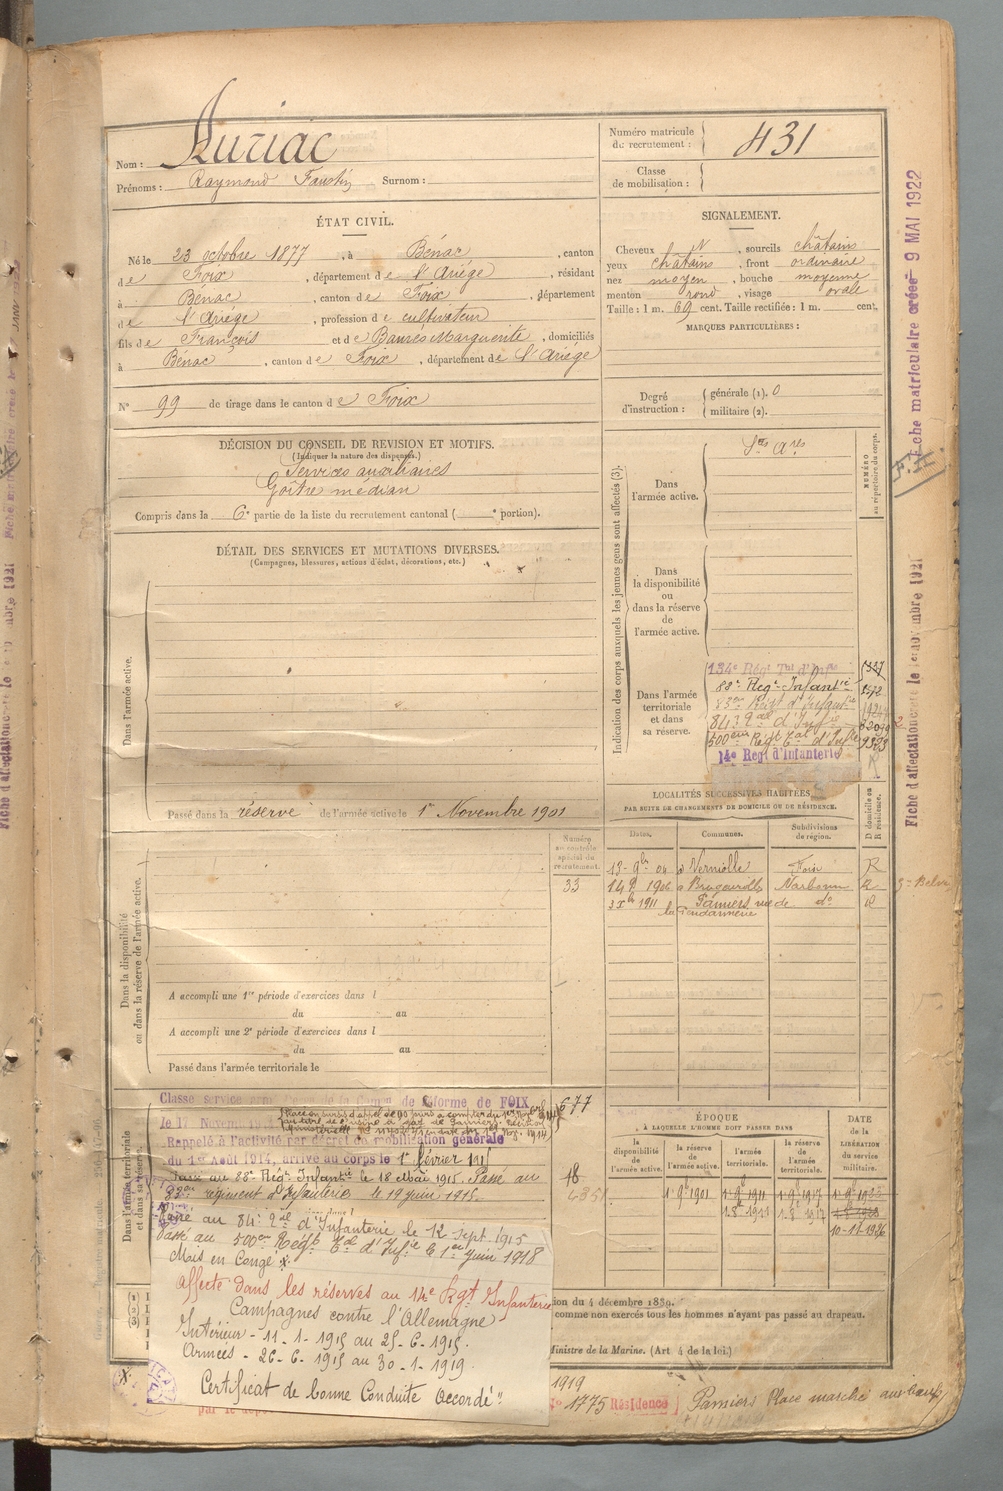 Nom : Auriac
Prénoms : Raymond Faustin Surnom :
Numéro matricule du recrutement : 431
Classe de mobilisation :
ÉTAT CIVIL.
Né le 23 octobre 1877, à Bénac, canton
de Foix, département de l'Ariége, résidant
à Bénac, canton de Foix, département
de l'Ariége, profession de cultivateur
fils de François et de Baurès Marguerite, domiciliés
à Bénac, canton de Foix, département de l'Ariége
N° 99 de tirage dans le canton de Foix
SIGNALEMENT.
Cheveux N, sourcils châtains
yeux châtains, front ordinaire
nez moyen, bouche moyenne
menton rond, visage ovale
Taille : 1 m. 69 cent. Taille rectifiée : 1 m. cent.
MARQUES PARTICULIÈRES :
Degré d'instruction : générale (1). 0
militaire (2).
DÉCISION DU CONSEIL DE REVISION ET MOTIFS.
(Indiquer la nature des dispenses.)
Services auxiliaires
Goître médian
Compris dans la 6e partie de la liste du recrutement cantonal ( e portion).
DÉTAIL DES SERVICES ET MUTATIONS DIVERSES.
(Campagnes, blessures, actions d'éclat, décorations, etc.)
Dans l'armée active.
Passé dans la réserve de l'armée active le 1er Novembre 1901
Indication des corps auxquels les jeunes gens sont affectés (3).
NUMÉRO au répertoire du corps.
Dans l'armée active.
Dans la disponibilité ou dans la réserve de l'armée active.
Dans l'armée territoriale et dans sa réserve.
134e Régt Tal d'Infie
88e Regt Infantie
83e Regt d'Infantie
84e Rt al d'Infie
500eme Regt Tal d'Infie
14e Regt d'Infanterie
LOCALITÉS SUCCESSIVES HABITÉES
PAR SUITE DE CHANGEMENTS DE DOMICILE OU DE RÉSIDENCE.
Dates. Communes. Subdivisions de région. D domicile ou R résidence.
13-9bre 04 à Verniolle Foix R
1906 à Narbonne R
1911 Pamiers, rue de do R
la Gendarmerie
Numéro au contrôle spécial du recrutement.
33
Dans la disponibilité ou dans la réserve de l'armée active.
A accompli une 1re période d'exercices dans l
du au
A accompli une 2e période d'exercices dans l
du au
Passé dans l'armée territoriale le
Dans l'armée territoriale et dans sa réserve
Classé service de Réforme de FOIX
677
le 17 Novem
Rappelé à l'activité par décret de mobilisation générale
du 1er Août 1914, arrivé au corps le 1er février 1915
Passé au 88e Régt Infantie le 18 Mai 1915. Passé au
83eme régiment d'Infanterie le 19 juin 1915.
Passé au 84e Rt al d'Infanterie le 12 Sept. 1915
Passé au 500eme Régt Tal d'Infie le 1er Juin 1918
Mis en Congé
affecté dans les réserves au 14e Rgt Infanterie
Campagnes contre l'Allemagne
Intérieur - 11 - 1 - 1915 au 25 - 6 - 1915.
Armées - 26 - 6 - 1915 au 30 - 1 - 1919.
Certificat de bonne Conduite Accordé"
ÉPOQUE
À LAQUELLE L'HOMME DOIT PASSER DANS
la disponibilité de l'armée active. la réserve de l'armée active. l'armée territoriale. la réserve de l'armée territoriale.
DATE de la LIBÉRATION du service militaire.
1er 9bre 1901 1er 9bre 1911 1er 9bre 1917
10-11-1926
ion du 4 décembre 1889.
comme non exercés tous les hommes n'ayant pas passé au drapeau.
Ministre de la Marine. (Art 4 de la loi.)
1919
No 1775 Résidence Pamiers Place marché aux bœufs
Fiche matriculaire créée 9 MAI 1922
F.M.